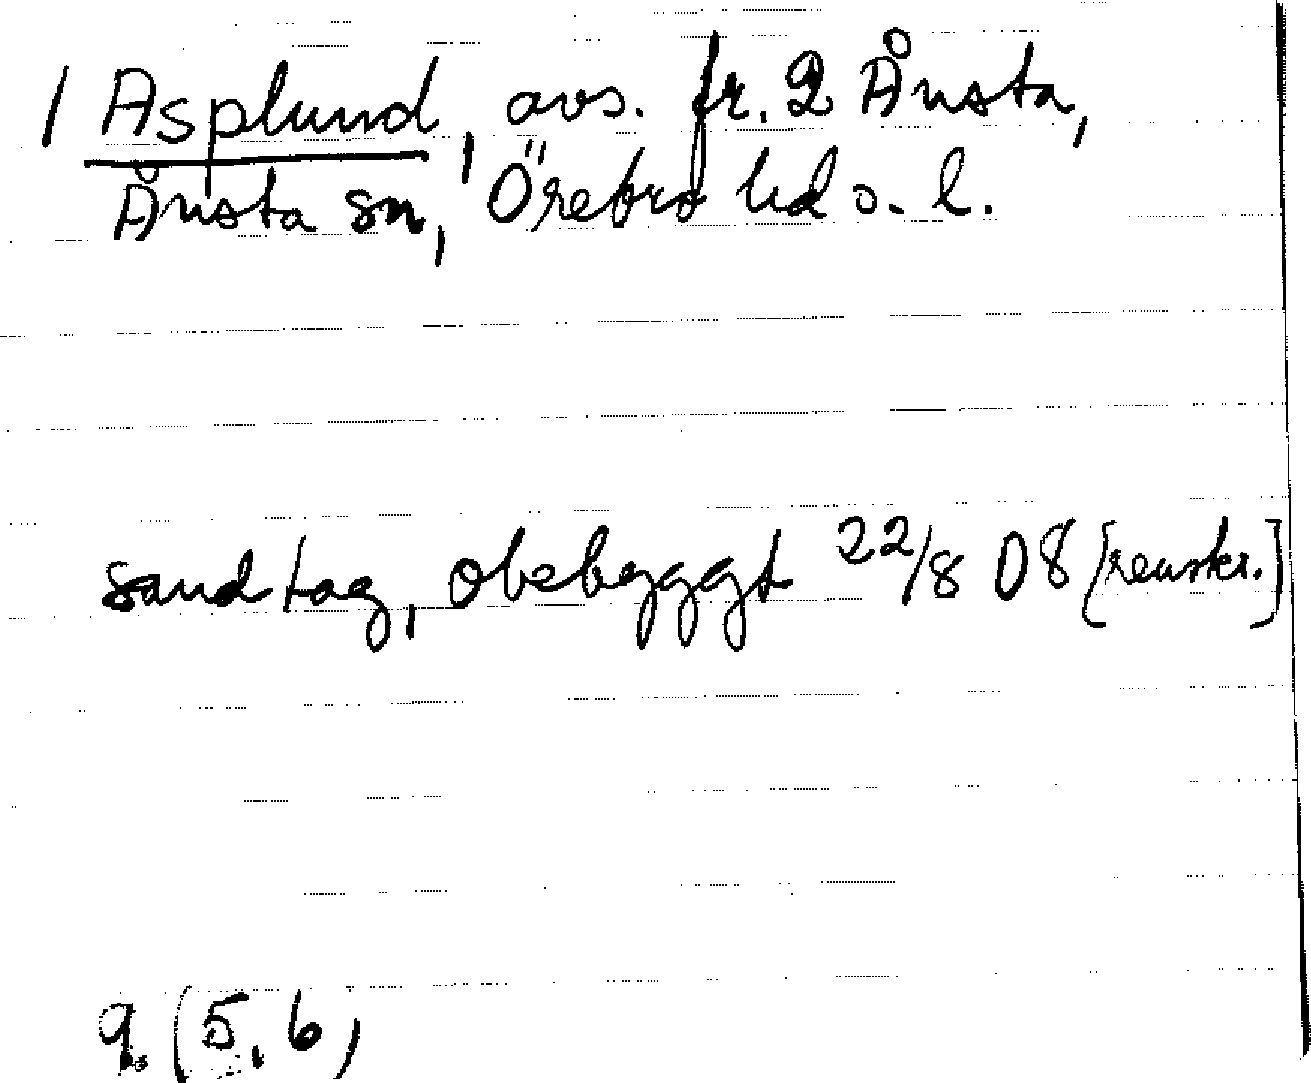 1 Asplund, avs. fr. 2 Ånsta,
Ånsta sn, Örebro hd o. l.
sandtag, obebyggt 22/8 08 [renskr.]
9. (5, 6)